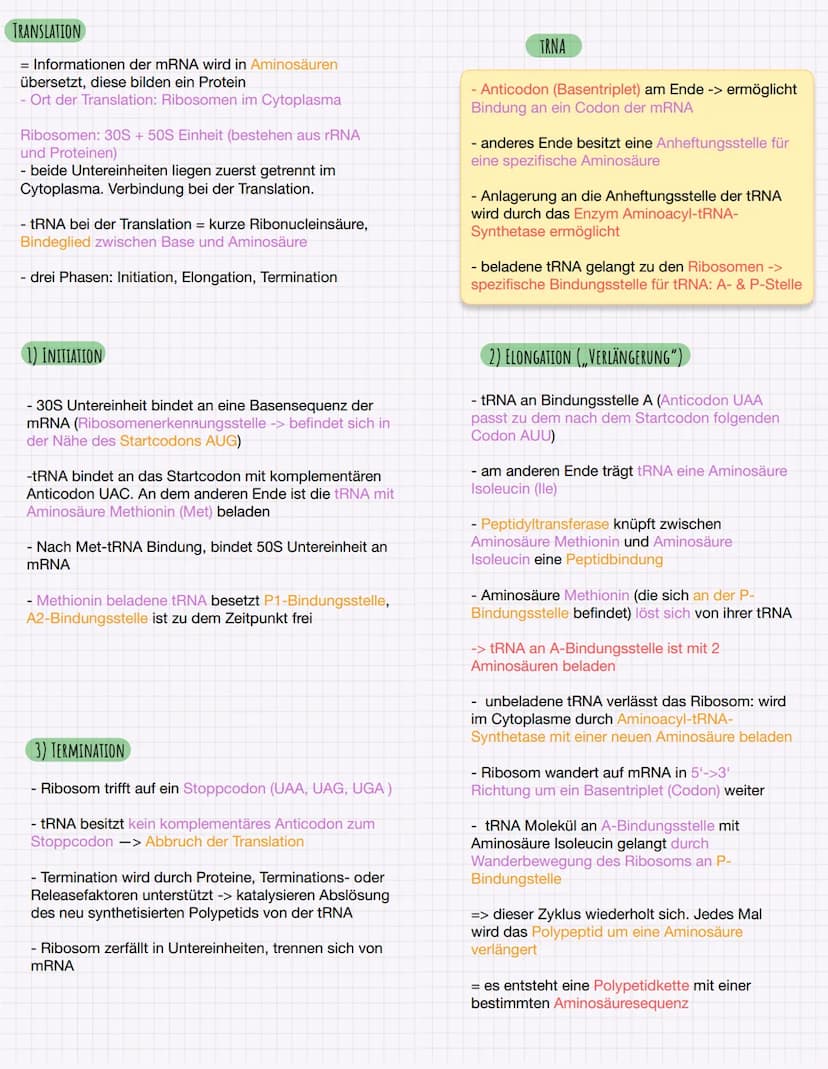 TRANSLATION
= Informationen der mRNA wird in Aminosäuren
übersetzt, diese bilden ein Protein
- Ort der Translation: Ribosomen im Cytoplasma
Ribosomen: 30S + 50S Einheit (bestehen aus rRNA
und Proteinen)
- beide Untereinheiten liegen zuerst getrennt im
Cytoplasma. Verbindung bei der Translation.
- tRNA bei der Translation = kurze Ribonucleinsäure,
Bindeglied zwischen Base und Aminosäure
- drei Phasen: Initiation, Elongation, Termination
TRNA
- Anticodon (Basentriplet) am Ende -> ermöglicht
Bindung an ein Codon der mRNA
- anderes Ende besitzt eine Anheftungsstelle für
eine spezifische Aminosäure
- Anlagerung an die Anheftungsstelle der tRNA
wird durch das Enzym Aminoacyl-tRNA-
Synthetase ermöglicht
- beladene tRNA gelangt zu den Ribosomen ->
spezifische Bindungsstelle für tRNA: A- & P-Stelle
1) INITIATION
- 30S Untereinheit bindet an eine Basensequenz der
mRNA (Ribosomenerkennungsstelle -> befindet sich in
der Nähe des Startcodons AUG)
-tRNA bindet an das Startcodon mit komplementären
Anticodon UAC. An dem anderen Ende ist die tRNA mit
Aminosäure Methionin (Met) beladen
- Nach Met-tRNA Bindung, bindet 50S Untereinheit an
mRNA
- Methionin beladene tRNA besetzt P1-Bindungsstelle,
A2-Bindungsstelle ist zu dem Zeitpunkt frei
2) ELONGATION („VERLÄNGERUNG“)
- tRNA an Bindungsstelle A (Anticodon UAA
passt zu dem nach dem Startcodon folgenden
Codon AUU)
- am anderen Ende trägt tRNA eine Aminosäure
Isoleucin (Ile)
- Peptidyltransferase knüpft zwischen
Aminosäure Methionin und Aminosäure
Isoleucin eine Peptidbindung
- Aminosäure Methionin (die sich an der P-
Bindungsstelle befindet) löst sich von ihrer tRNA
-> tRNA an A-Bindungsstelle ist mit 2
Aminosäuren beladen
- unbeladene tRNA verlässt das Ribosom: wird
im Cytoplasme durch Aminoacyl-tRNA-
Synthetase mit einer neuen Aminosäure beladen
- Ribosom wandert auf mRNA in 5'->3'
Richtung um ein Basentriplet (Codon) weiter
- tRNA Molekül an A-Bindungsstelle mit
Aminosäure Isoleucin gelangt durch
Wanderbewegung des Ribosoms an P-
Bindungstelle
=> dieser Zyklus wiederholt sich. Jedes Mal
wird das Polypeptid um eine Aminosäure
verlängert
= es entsteht eine Polypetidkette mit einer
bestimmten Aminosäuresequenz
3) TERMINATION
- Ribosom trifft auf ein Stoppcodon (UAA, UAG, UGA )
- tRNA besitzt kein komplementäres Anticodon zum
Stoppcodon —> Abbruch der Translation
- Termination wird durch Proteine, Terminations- oder
Releasefaktoren unterstützt -> katalysieren Abslösung
des neu synthetisierten Polypetids von der tRNA
- Ribosom zerfällt in Untereinheiten, trennen sich von
mRNA